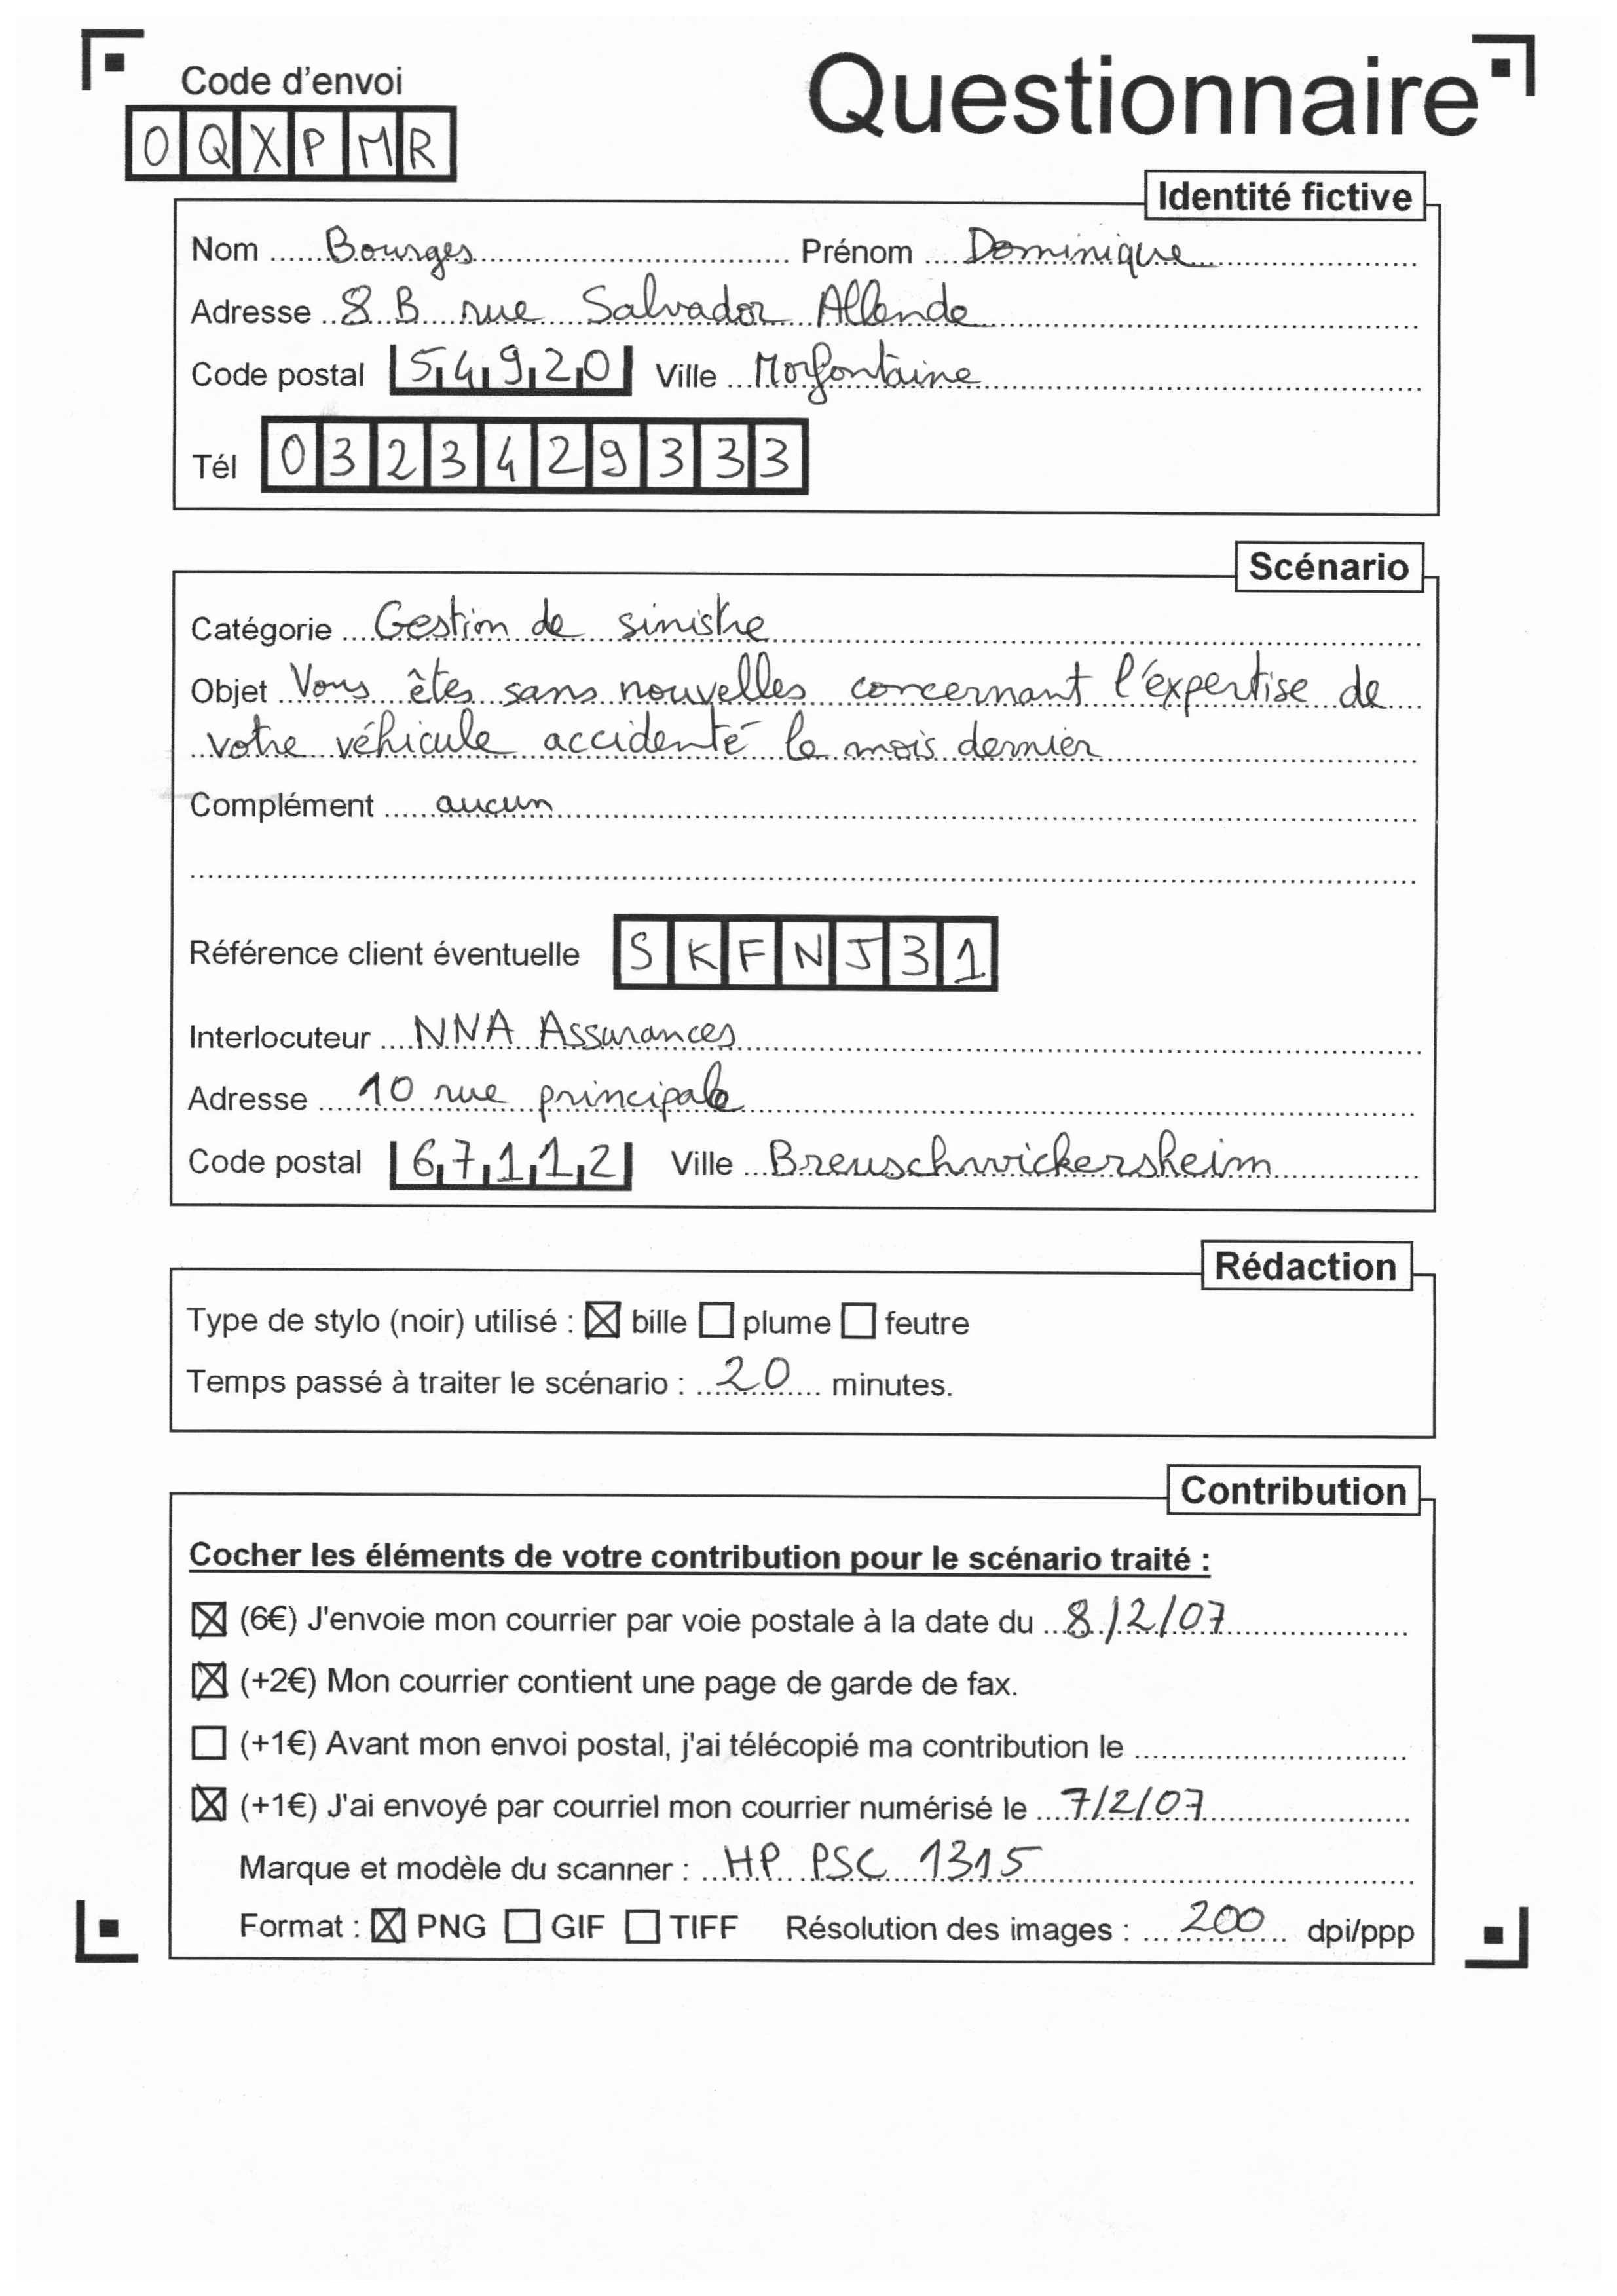 Code d'envoi
Questionnaire
OQXPMR
Identité fictive
Nom Bourges Prénom Dominique
Adresse 8 B rue Salvador Allende
Code postal 54920 Ville Morfontaine
Tél 0323429333
Scénario
Catégorie Gestion de sinistre
Objet Vous êtes sans nouvelles concernant l'expertise de
votre véhicule accidenté le mois dernier
Complément aucun
Référence client éventuelle SKFNJ31
Interlocuteur NNA Assurances
Adresse 10 rue principale
Code postal 67112 Ville Breuschwickersheim
Rédaction
Type de stylo (noir) utilisé : ☒ bille ☐ plume ☐ feutre
Temps passé à traiter le scénario : 20 minutes.
Contribution
Cocher les éléments de votre contribution pour le scénario traité :
☒ (6€) J'envoie mon courrier par voie postale à la date du 8/2/07
☒ (+2€) Mon courrier contient une page de garde de fax.
☐ (+1€) Avant mon envoi postal, j'ai télécopié ma contribution le
☒ (+1€) J'ai envoyé par courriel mon courrier numérisé le 7/2/07
Marque et modèle du scanner : HP PSC 1315
Format : ☒ PNG ☐ GIF ☐ TIFF Résolution des images : 200 dpi/ppp